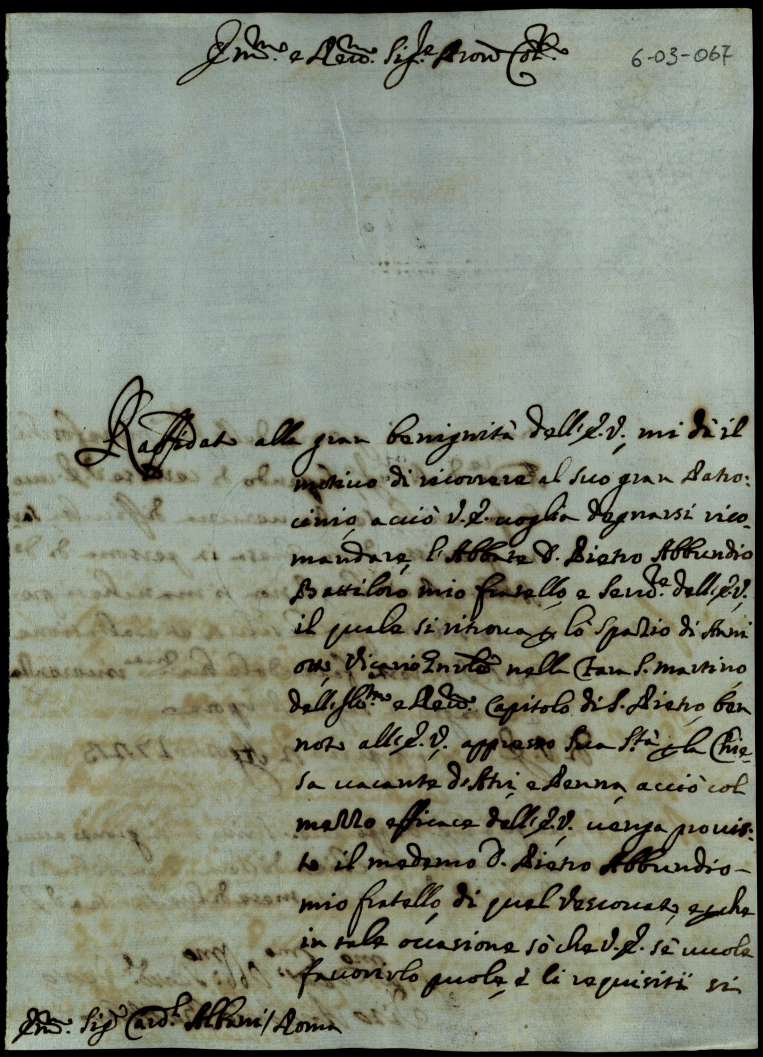 Em.mo e Rev.mo Sig.re Pron Col.mo
6-03-067
Raffidato alla gran benignità dell'E.V., mi dà il
motivo di ricorrere al suo gran Patro-
cinio, acciò V.E. voglia degnarsi rico-
mandare, l'Abbate D. Pietro Abbundio
Battiloro mio fratello, e Serv.re dell'E.V.
il quale si ritrova p lo spazio di Anni
otto Vicario nella S. Martino,
dell'Ill.mo e Rev.mo Capitolo di S. Pietro ben
noto all'E.V. appresso Sua S.tà p la Chie-
sa vacante d'Atri e Penna, acciò col
mezzo efficace dell'E.V. venga provis-
to il medemo D. Pietro Abbundio
mio fratello, di quel Vescovato, e p che
in tale occasione sò che V.E. se vuole
favorirlo puole, e li requisiti si
Em.mo Sig.re Card.l Albani / Roma